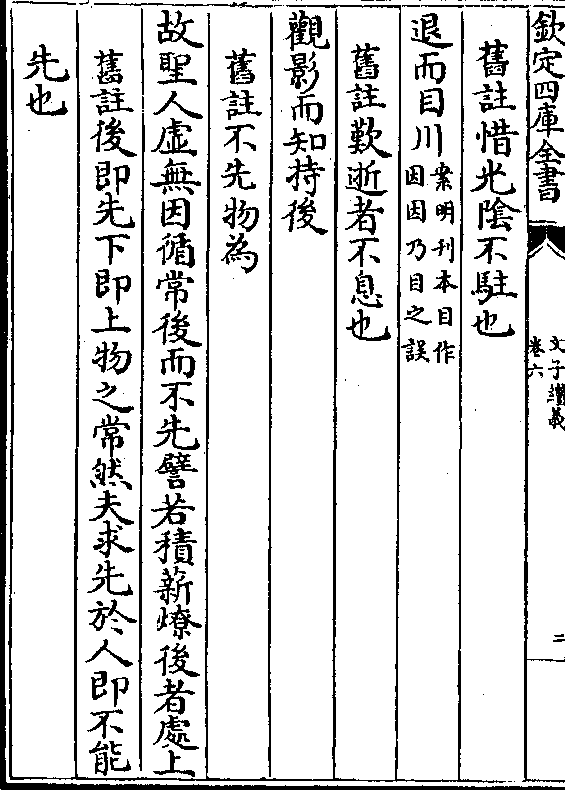 欽定四庫全書
文子纘義
卷六
二
舊註惜光陰不駐也
退而目川案明刊本目作因因乃目之誤
舊註歎逝者不息也
觀影而知持後
舊註不先物為
故聖人虛無因循常後而不先譬若積薪燎後者處上
舊註後即先下即上物之常然夫求先於人即不能
先也